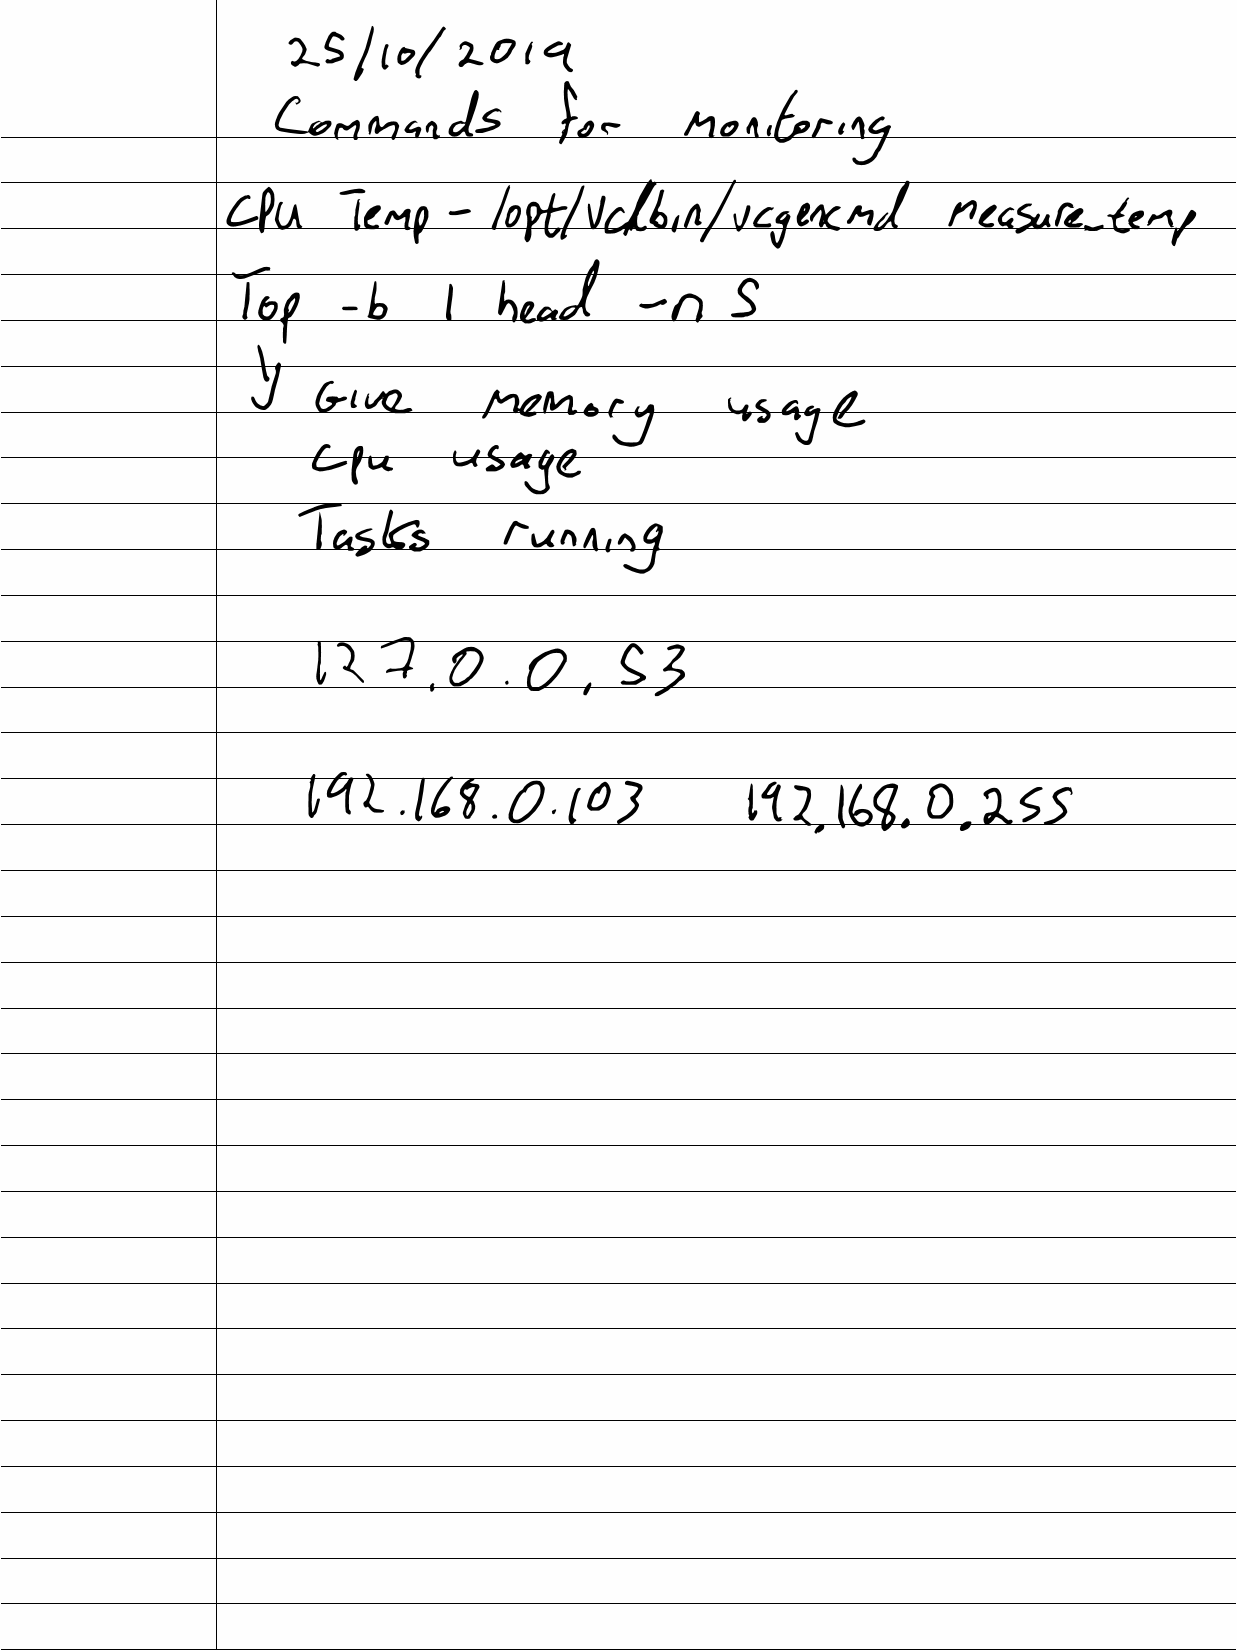 25/10/2019
Commands for monitoring
CPU Temp - /opt/vc/bin/vcgencmd measure_temp
Top -b | head -n 5
Give memory usage
Cpu usage
Tasks running
127.0.0.53
192.168.0.103 192.168.0.255